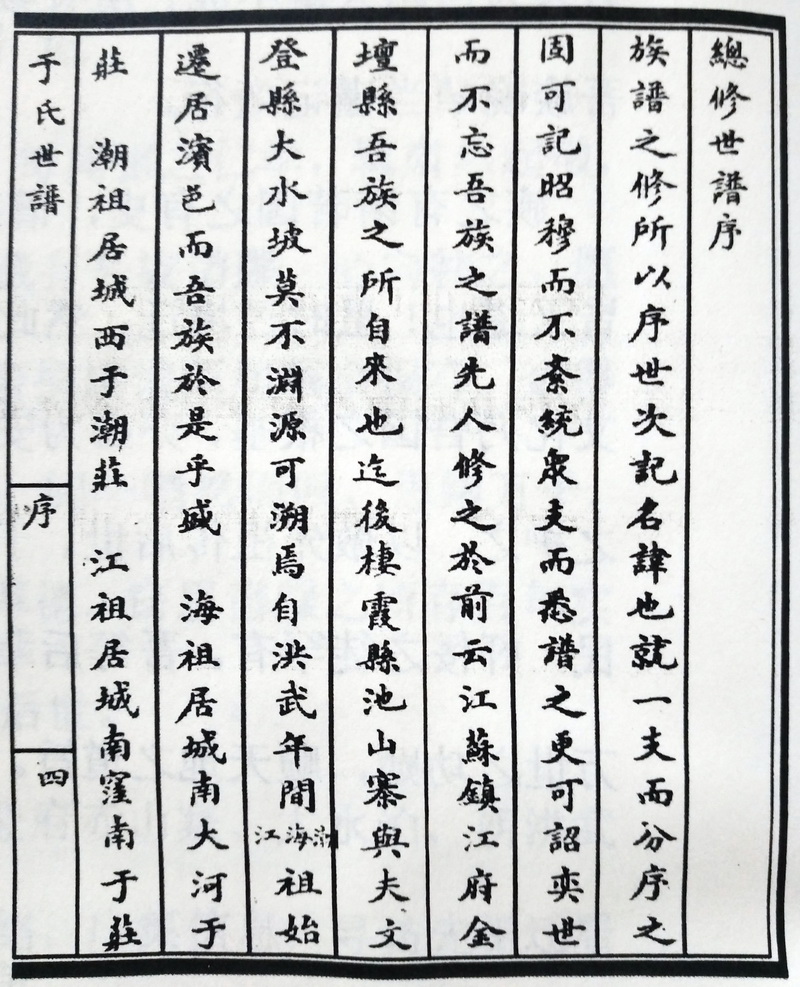 總修世譜序
族譜之修所以序世次記名諱也就一支而分序之
固可記昭穆而不紊統衆支而悉譜之更可詔奕世
而不忘吾族之譜先人修之於前云江蘇鎮江府金
壇縣吾族之所自來也迄後棲霞縣池山寨與夫文
登縣大水坡莫不淵源可溯焉自洪武年間江海潮祖始
遷居濱邑而吾族於是乎盛 海祖居城南大河于
莊 潮祖居城西于潮莊 江祖居城南窪南于莊
于氏世譜
序
四